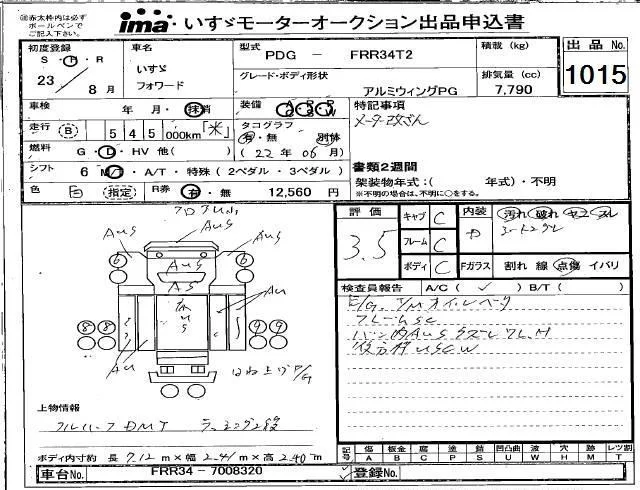 ※赤太枠内は必ず
ボールペンで
ご記入下さい。
ima いすゞモーターオークション出品申込書
初度登録
S・H・R
23 8月
車名
いすゞ
フォワード
型式 PDG - FRR34T2
グレード・ボディ形状
アルミウィングPG
積載 (kg)
排気量 (cc)
7,790
出品 No.
1015
車検 年・月・抹消
装備 A・P・P
C S W
特記事項
メーター改ざん
走行 B 5 4 5 000km「米」
タコグラフ
有・無 別体
(22年06月)
燃料 G・D・HV 他( )
シフト 6 MT・A/T・特殊(2ペダル・3ペダル)
書類2週間
架装物年式:( 年式)・不明
※不明の場合は、不明に○をする。
色 白 (指定) R券 有・無 12,560 円
評価 3.5
キャブ C
フレーム C
ボディ C
内装 汚れ 破れ ヤニ ズレ
Fガラス 割れ 線 点傷 イバリ
検査員報告 A/C( ✓ ) B/T( )
E/G. T/M オイルベータ
フレームSC
AUS
AUS
AUS
AUS
AUS
AU
AU
6
6
8 8
9 9
はね上げP/G
上物情報
フルハーフ DMT
ボディ内寸約 長 7.12 m×幅 2.41 m×高 2.40 m
記号 傷 A 板金 B 腐 C 塗 P 錆 S 凹凸曲 U 波 W 穴 H 跡 M レツ割 T
車台No. FRR34 - 7008320
登録No.